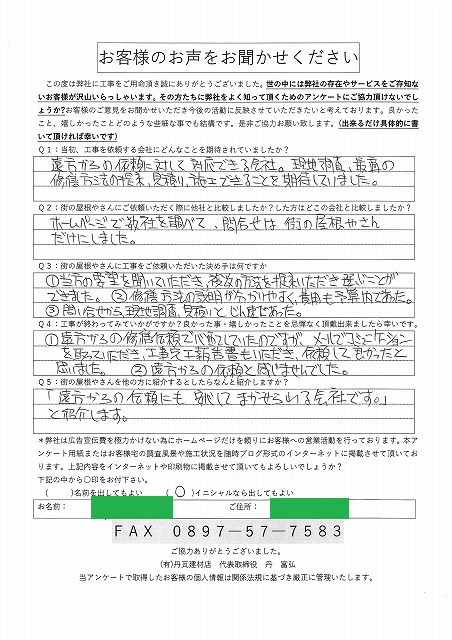 お客様のお声をお聞かせください
この度は弊社に工事をご用命頂き誠にありがとうございました。世の中には弊社の存在やサービスをご存知な
いお客様が沢山いらっしゃいます。その方たちに弊社をよく知って頂くためのアンケートにご協力頂けないでし
ょうか?お客様のご意見をお聞かせいただき今後の活動に反映させていただきたいと考えております。良かった
こと、嬉しかったことどのような些細な事でも結構です。是非ご協力お願い致します。(出来るだけ具体的に書
いて頂ければ幸いです)
Q1:当初、工事を依頼する会社にどんなことを期待されていましたか?
遠方からの依頼に対して対応できる会社。現地調査、最適の
修繕方法の提案、見積り、施工できることを期待していました。
Q2:街の屋根やさんにご依頼いただく際に他社と比較しましたか?した方はどこの会社と比較しましたか?
ホームページで数社を調べて、問合せは街の屋根やさん
だけにしました。
Q3:街の屋根やさんに工事をご依頼いただいた決め手は何ですか
①当方の要望を聞いていただき、複数の方法を提案いただき選ぶことが
できました。②修繕方法の説明が分かりやすく、費用も予算内であった。
③問い合せから現地調査、見積りと迅速であった。
Q4:工事が終わってみていかがですか?良かった事・嬉しかったことを忌憚なく頂戴出来ましたら幸いです。
①遠方からの修繕依頼で心配していたのですが、メールでコミュニケーション
を取っていただき、工事完工報告書もいただき、依頼して良かったと
思いました。②遠方からの依頼と感じませんでした。
Q5:街の屋根やさんを他の方に紹介するとしたらなんと紹介しますか?
「遠方からの依頼にも安心してまかせられる会社です。」
と紹介します。
*弊社は広告宣伝費を極力かけない為にホームページだけを頼りにお客様への営業活動を行っております。本ア
ンケート用紙またはお客様宅の調査風景や施工状況を随時ブログ形式のインターネットに掲載させて頂いてお
ります。上記内容をインターネットや印刷物に掲載させて頂いてもよろしいでしょうか?
下記の中から〇印をお付下さい。
( )名前を出してもよい (〇)イニシャルなら出してもよい
お名前: ご住所:
FAX 0897-57-7583
ご協力ありがとうございました。
(有)丹瓦建材店 代表取締役 丹 富弘
当アンケートで取得したお客様の個人情報は関係法規に基づき厳正に管理いたします。